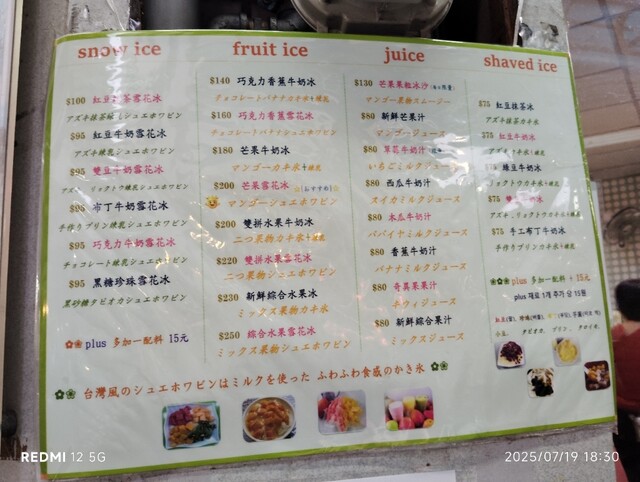 snow ice
$100 紅豆抹茶雪花冰
アズキ抹茶練乳シュエホワピン
$95 紅豆牛奶雪花冰
アズキ練乳シュエホワピン
$95 雙豆牛奶雪花冰
リョクトウ練乳シュエホワピン
$95 布丁牛奶雪花冰
手作りプリン練乳シュエホワピン
$95 巧克力牛奶雪花冰
チョコレート練乳シュエホワピン
$95 黑糖珍珠雪花冰
黒砂糖タピオカシュエホワピン
plus 多加一配料 15元
fruit ice
$140 巧克力香蕉牛奶冰
チョコレートバナナカキ氷+練乳
$160 巧克力香蕉雪花冰
チョコレートバナナシュエホワピン
$180 芒果牛奶冰
マンゴーカキ氷+練乳
$200 芒果雪花冰 (おすすめ)
マンゴーシュエホワピン
$200 雙拼水果牛奶冰
二つ果物カキ氷+練乳
$220 雙拼水果雪花冰
二つ果物シュエホワピン
$230 新鮮綜合水果冰
ミックス果物カキ氷
$250 綜合水果雪花冰
ミックス果物シュエホワピン
juice
$130 芒果果粒冰沙
マンゴー果物スムージー
$80 新鮮芒果汁
マンゴージュース
$80 草莓牛奶汁
いちごミルクジュース
$80 西瓜牛奶汁
スイカミルクジュース
$80 木瓜牛奶汁
パパイヤミルクジュース
$80 香蕉牛奶汁
バナナミルクジュース
$80 奇異果果汁
キウィジュース
$80 新鮮綜合果汁
ミックスジュース
shaved ice
$75 紅豆抹茶冰
アズキ抹茶カキ氷
$75 紅豆牛奶冰
アズキカキ氷+練乳
$75 綠豆牛奶冰
リョクトウカキ氷+練乳
$75
$75 手工布丁牛奶冰
手作りプリンカキ氷+練乳
plus 多加一配料 + 15元
plus 재료 1개 추가 당 15원
小豆, タピオカ, プリン, タロイモ,
台灣風のシュエホワピンはミルクを使った ふわふわ食感のかき氷
REDMI 12 5G
2025/07/19 18:30